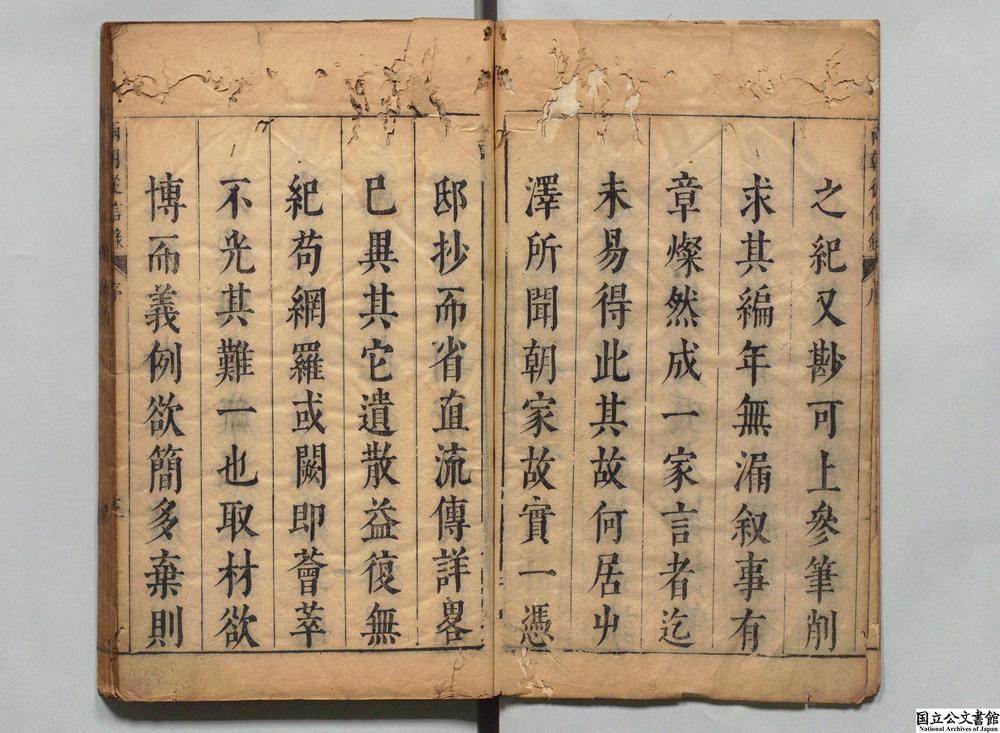 之紀又尠可上參筆削
求其編年無漏叙事有
章燦然成一家言者迄
未易得此其故何居山
澤所聞朝家故實一憑
邸抄而省直流傳詳畧
已異其它遺散益復無
紀苟網羅或闕即薈萃
不光其難一也取材欲
博而義例欲簡多棄則
兩朝從信錄
序
国立公文書館
National Archives of Japan